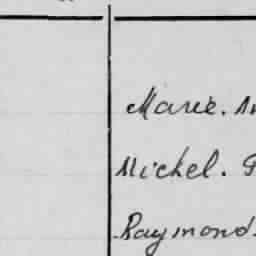 Marie.
Michel.
Raymond.